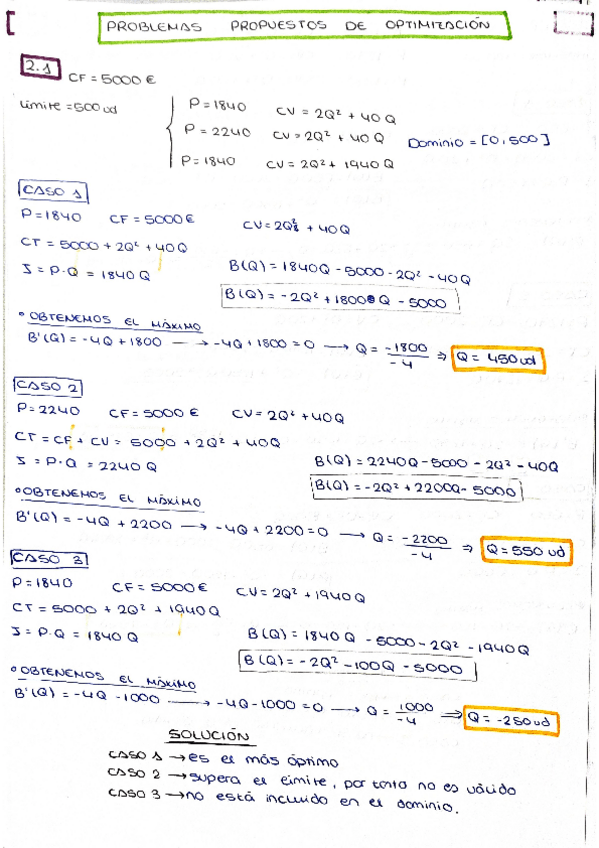 PROBLEMAS PROPUESTOS DE OPTIMIZACIÓN
2.1 CF = 5000 €
Límite = 500 ud
P = 1840 CV = 2Q² + 40Q
P = 2240 CV = 2Q² + 40Q Dominio = [0,500]
P = 1840 CV = 2Q² + 1940Q
CASO 1
P = 1840 CF = 5000€ CV = 2Q² + 40Q
CT = 5000 + 2Q² + 40Q
I = P·Q = 1840Q B(Q) = 1840Q - 5000 - 2Q² - 40Q
B(Q) = -2Q² + 1800Q - 5000
• OBTENEMOS EL MÁXIMO
B'(Q) = -4Q + 1800 → -4Q + 1800 = 0 → Q = -1800/-4 ⇒ Q = 450 ud
CASO 2
P = 2240 CF = 5000€ CV = 2Q² + 40Q
CT = CF + CV = 5000 + 2Q² + 40Q
I = P·Q = 2240Q B(Q) = 2240Q - 5000 - 2Q² - 40Q
B(Q) = -2Q² + 2200Q - 5000
• OBTENEMOS EL MÁXIMO
B'(Q) = -4Q + 2200 → -4Q + 2200 = 0 → Q = -2200/-4 ⇒ Q = 550 ud
CASO 3
P = 1840 CF = 5000€ CV = 2Q² + 1940Q
CT = 5000 + 2Q² + 1940Q
I = P·Q = 1840Q B(Q) = 1840Q - 5000 - 2Q² - 1940Q
B(Q) = -2Q² - 100Q - 5000
• OBTENEMOS EL MÁXIMO
B'(Q) = -4Q - 1000 → -4Q - 1000 = 0 → Q = 1000/-4 ⇒ Q = -250 ud
SOLUCIÓN
CASO 1 → es el más óptimo
CASO 2 → supera el límite, por tanto no es válido
CASO 3 → no está incluido en el dominio.